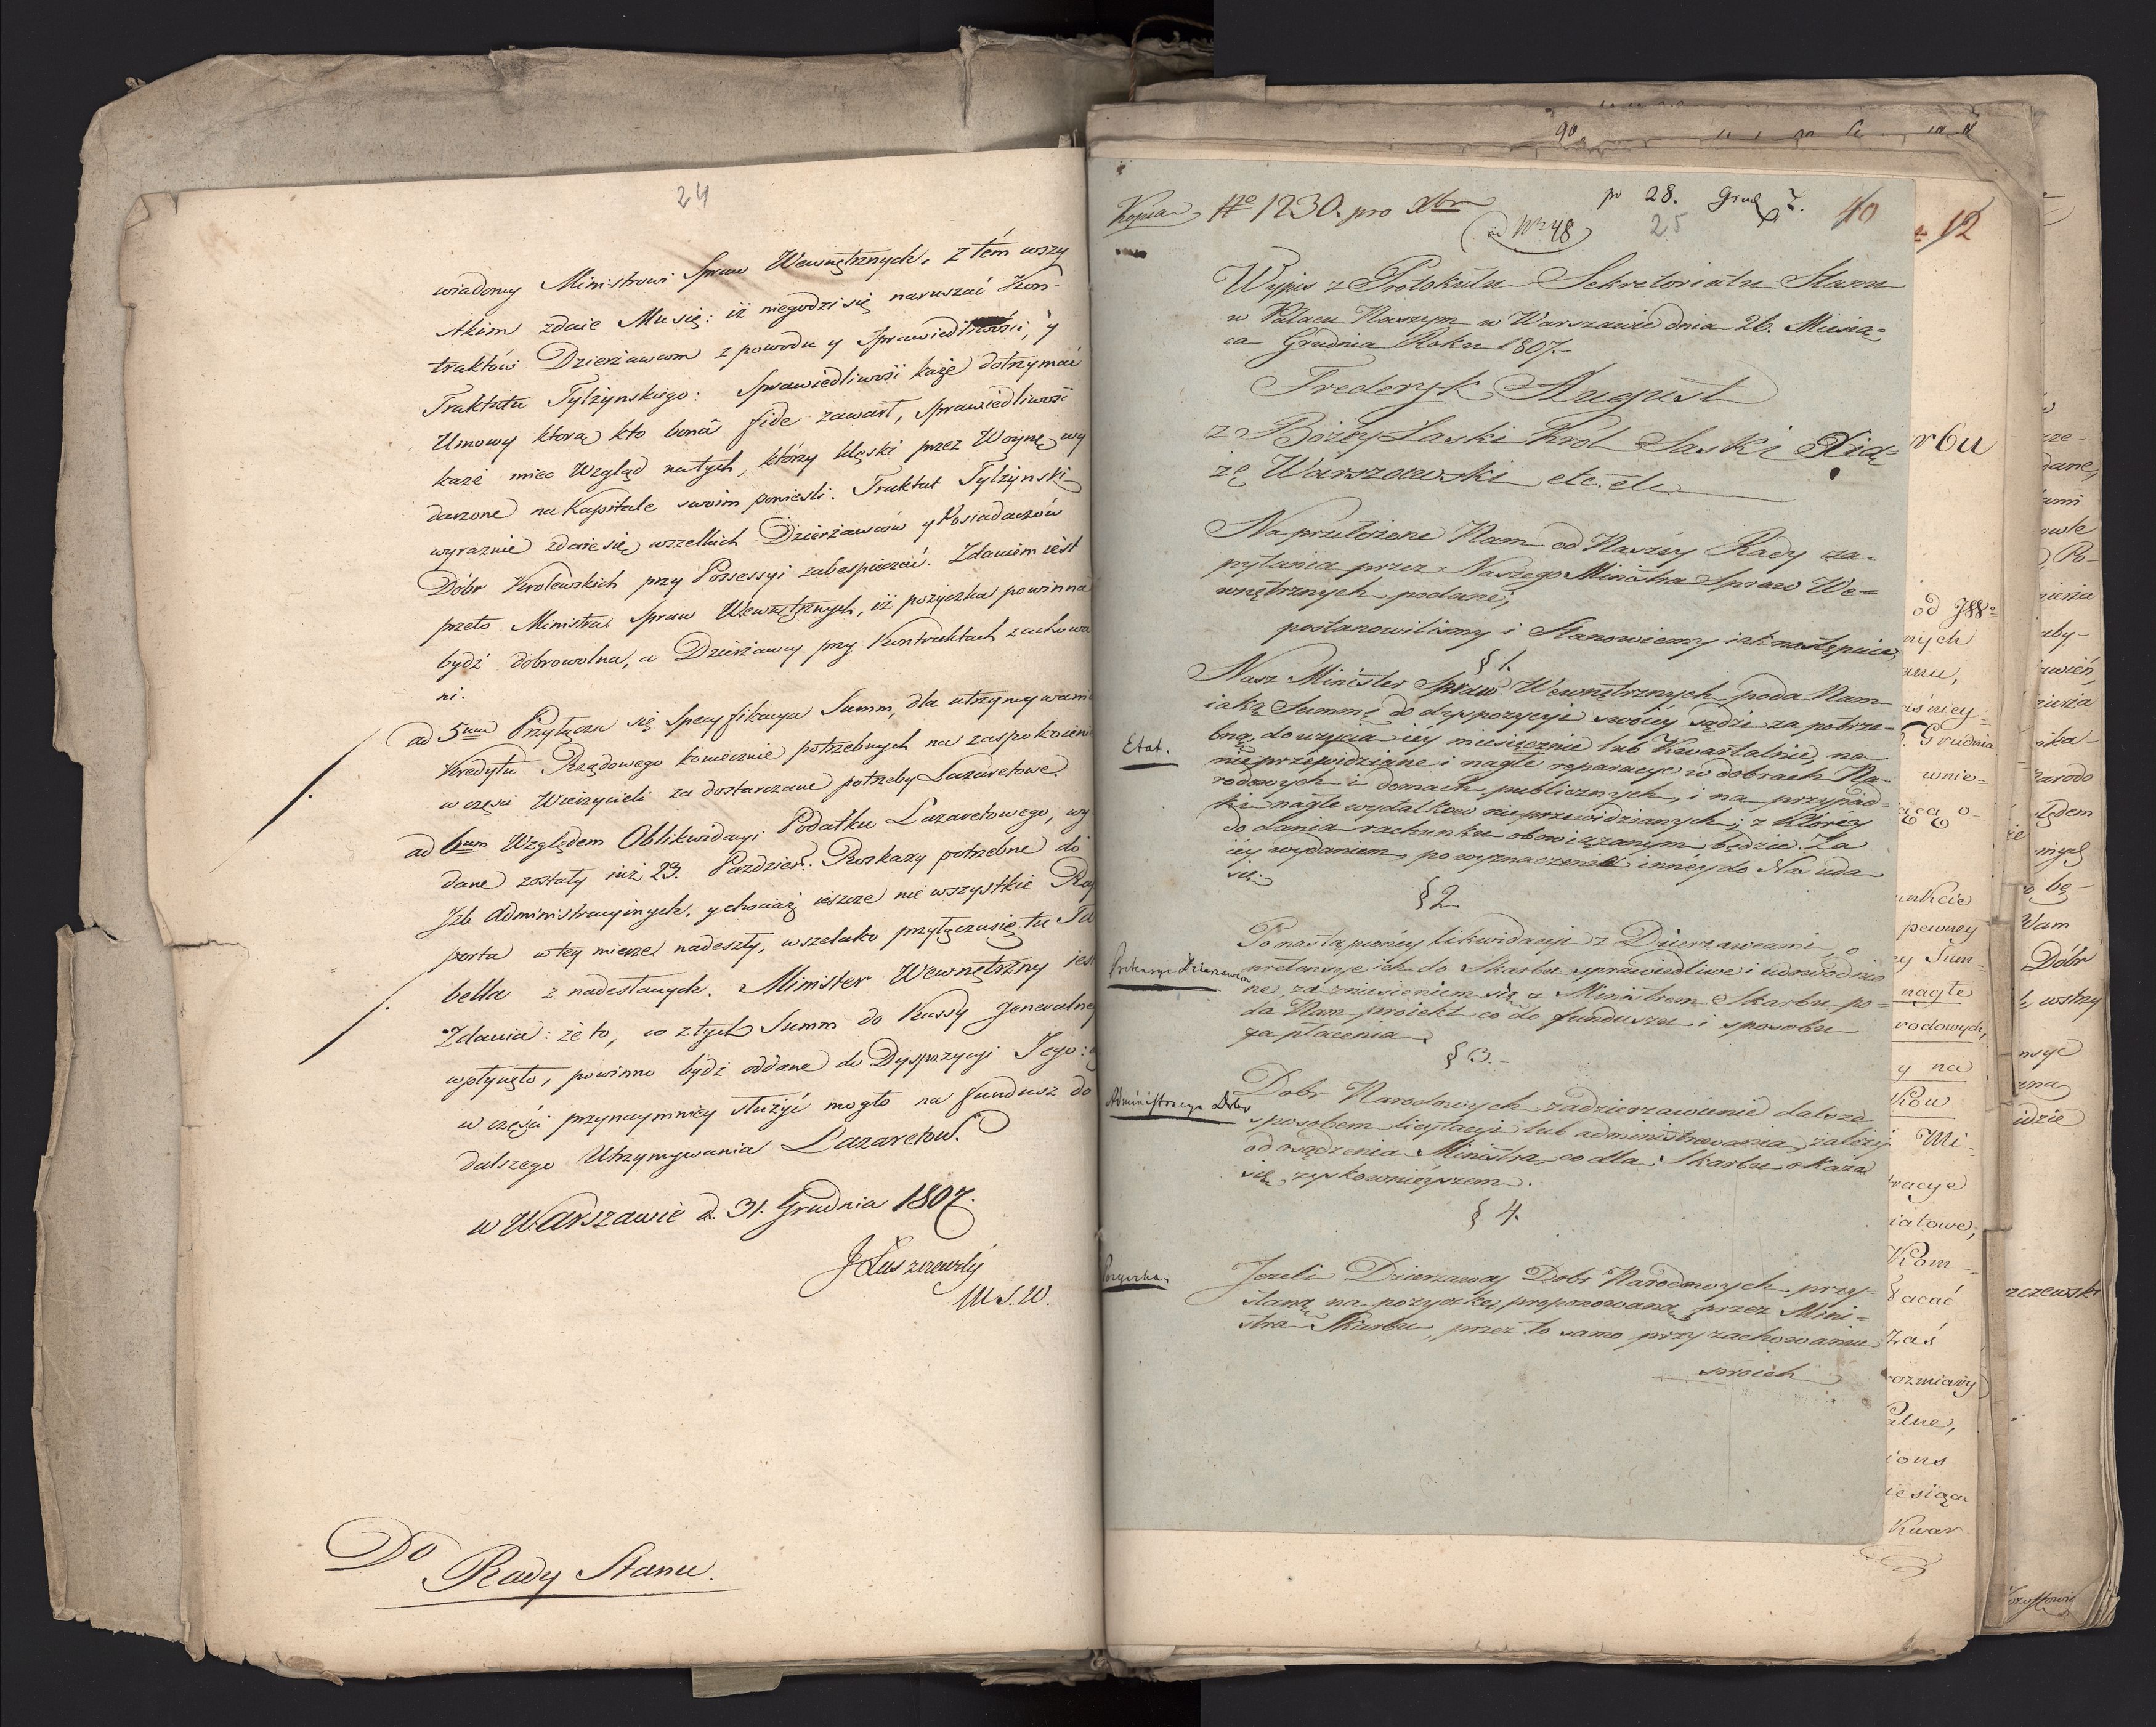 24
wiadomy Ministrowi Spraw Wewnętrznych. z tém wszy
stkim zdaie Mu się: iż niegodzi się naruszać Kon-
traktów Dzierżawom z powodu y Sprawiedliwości, y
Traktatu Tylżynskiego: Sprawiedliwość każe dotrzymać
Umowy ktorą kto bonâ fide zawarł, Sprawiedliwość
każe miec Wzgląd na tych, którzy klęski przez Woynę wy
darzone na Kapitale swoim ponieśli. Traktat Tylżynski
wyraznie zdaie się wszelkich Dzierżawców y Posiadaczów
Dóbr Krolewskich przy Possessyi zabespieczać. Zdaniem iest
przeto Ministra Spraw Wewnętrznych, iż pożyczka powinna
bydź dobrowolna, a Dzierżawcy przy Kontraktach zachowa
ni.
ad 5um Przyłącza się Specyfikacya Summ, dla utrzymywani
Kredytu Rządowego koniecznie potrzebnych na zaspokoieni
w części Wierzycieli za dostarczane potrzeby Lazaretowe.
ad 6um Względem Oblikwidacyi Podatku Lazaretowego, wy
dane zostały iuż 23. Paździer: Roskazy potrzebne do
Jzb Administracyinych, y chociaż ieszcze nie wszystkie Ra
porta w tey mierze nadeszły, wszelako przyłącza się tu Ta
bella z nadesłanych. Minister Wewnętrzny iest
Zdania: że to, co z tych Summ do Kassy Generalney
wpłynęło, powinno bydź oddane do Dyspozycyi Jego:
w części przynaymniey służyć mogło na fundusz do
dalszego Utrzymywania Lazaretow.
w Warszawie d. 31. Grudnia 1807.
J Łuszczewsky
M.S.W.
Do
Rady Stanu.
Kopia No 1230. pro Xbr
po 28. Grud 7.
ad No 48
25
10
12
Wypis z Protokułu Sekretoriatu Stanu
w Pałacu Naszym w Warszawie dnia 26. Miesią-
ca Grudnia Roku 1807.-
Frederyk August
z Bożey Łaski Król Saski Xią-
żę Warszawski etc. etc.
Na przełożone Nam od Naszéy Rady za-
pytania przez Naszego Ministra Spraw We-
wnętrznych podane;
postanowiliśmy i Stanowiemy iak następuie;
§ 1.
Nasz Minister Spraw Wewnętrznych poda Nam
iaką Summę do dyspozycyi swoiéy sądzi za potrze-
Etat.
bną, do użycia iéy miesięcznie lub Kwartalnie, na
nieprzewidziane i nagłe reparacye w dobrach Na-
rodowych i domach publicznych, i na przypad-
ki nagłe wydatkow nieprzewidzianych; z któréy
do dania rachunku obowiązanym będzie. Za
iéy wydaniem, po wyznaczenie innéy do Nas uda
się.
§ 2.
Po nastąpionéy likwidacyi z Dzierżawcami, o
Pretensye Dzierżawców
pretensye ich do Skarbu sprawiedliwe i udowodnio
ne, za zniesieniem się z Ministrem Skarbu po-
da Nam proiekt co do funduszu i sposobu
zapłacenia.
§ 3.-
Dobr Narodowych zadzierżawienie dalsze
Administracya Dobr
sposobem licytacyi lub administrowania, zależy
od osądzenia Ministra, co dla Skarbu okaże
się zyskownieyszem.
§ 4.
Pożyczka.
Jeżeli Dzierżawcy Dobr Narodowych przy-
staną na pożyczkę, proponowaną przez Mini-
stra Skarbu, przez to samo przy zachowaniu
swoich
rbu
od JWo
nych
anu,
. Grudnia
wnie-
unkcie
pewney
y Sum-
nagłe
rodowych,
y na
ków
Mi-
racye
iatowe,
Kom-
Zaś
rozmiary
alne,
iesiąca
Kwar
dane,
Po-
Narodo
Wam
Dóbr
idzie
szczewski